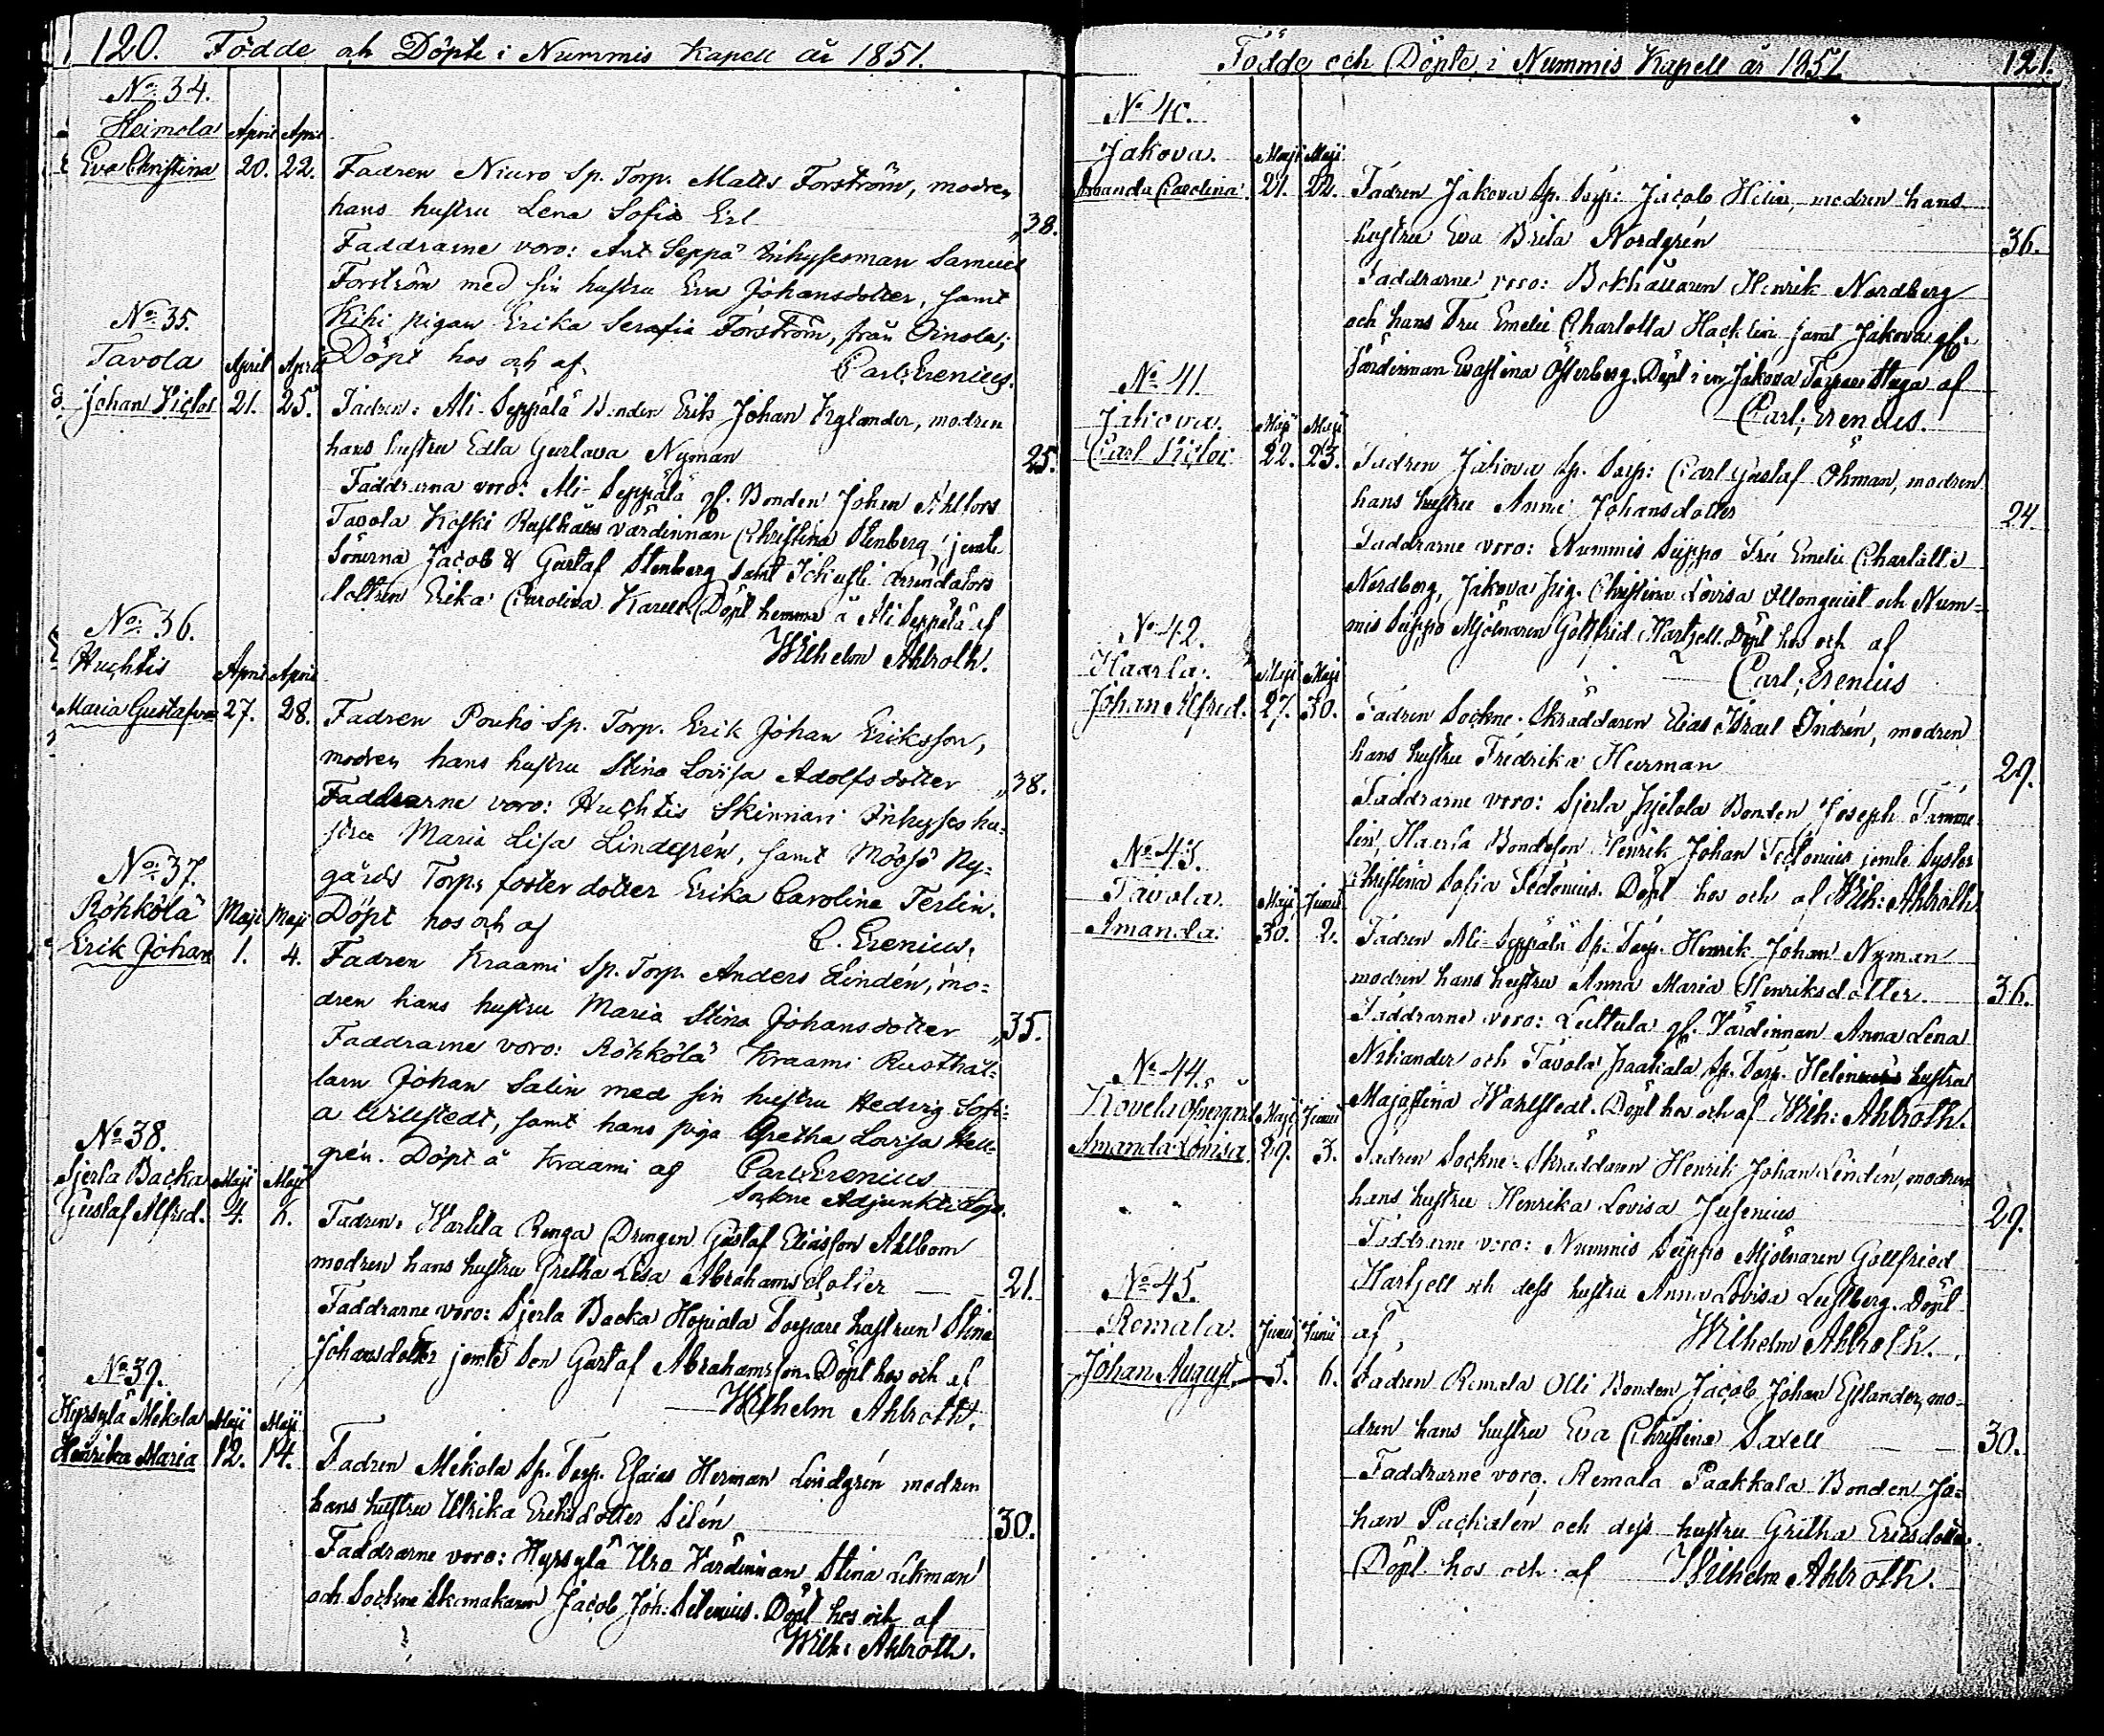 120. Födde och Döpte i Nummis Kapell år 1851.
No 34.
Heimola April April
Eva Christina 20. 22. Fadren Niuro Sp. Torp. Matts Forström, modren
hans hustru Lena Sofia „38.
Faddrarne voro: Ant Seppä Inhysesman Samuel
Forström med sin hustru Eva Johansdotter, samt
Kihi pigan Erika Serafia Forström, från Oinola;
Döpt hos och af Carl; Erenius.
No 35.
Tavola April April
Johan Victor 21. 25. Fadren: Ali-Seppälä Bonden Erik Johan, modren
hans hustru Edla Gustava Nyman 25.
Faddrarna voro: Ali-Seppälä gf. Bonden Johan Ahlfors
Tavola Koski Rusthåls värdinnan Christina Stenberg, jemte
Sönerna Jacob & Gustaf Stenberg samt arrendators
dottren Erika Carolina Döpt hemma å Ali Seppälä af
Wilhelm Ahlroth.
No 36.
Huchtis April April
Maria Gustafva 27. 28. Fadren Pouho Sp. Torp. Erik Johan Eriksson,
modren hans hustru Stina Lovisa Adolfsdotter „38.
Faddrarne voro: Huchtis Skinnari Inhyses hu-
stru Maria Lisa Lindgrén, samt Möösö Ny-
gårds Torp. foster dotter Erika Carolina Terlin.
Döpt hos och af C. Erenius.
No 37.
Röhkölä Maji Maji
Erik Johan 1. 4. Fadren Kraami Sp. Torp. Anders Lindén, mo-
dren hans hustru Maria Stina Johansdotter „35.
Faddrarne voro: Röhkölä Kraami Rusthål-
laren Johan Salin med sin hustru Hedvig Sofi-
a Willstedt, samt hans piga Gretha Lovisa Hell-
grén. Döpt å Kraami af Carl; Erenius
Sockne Adjunkt i Loja.
No 38.
Sjerla Backa Maji Maji
Gustaf Alfred. 4. 6. Fadren, Drengen Gustaf Eliasson Ahlbom
modren hans hustru Gretha Lisa Abrahamsdotter 21.
Faddrarne voro: Sjerla Backa Torpare hustrun Stina
Johansdotter jemte Son Gustaf Abrahamsson. Döpt hos och af
Wilhelm Ahlroth.
No 39.
Hyrsylä Mikola Maji Maji
Henrika Maria 12. 14. Fadren Mikola Sp. Torp. Esaias Herman Lindgrén modren
hans hustru Ulrika Eriksdotter Silén 30.
Faddrarne voro: Hyrsylä Uro Värdinnan Stina Ekman
och Sockne Skomakaren Jacob Joh: Selenius. Döpt hos och af
Wilh: Ahlroth.
Födde och Döpte i Nummis Kapell år 1851. 121.
No 40.
Jakova. Maji Maji
Amanda Carolina 21. 22. Fadren Jakova Sp. Torp: Jacob Helin, modren hans
hustru Eva Brita Nordgrén 36.
Faddrarne voro: Bokhållaren Henrik Nordberg
och hans Fru Emelie Charlotta Hacklin samt Jakova gf:
Värdinnan Evastina Österberg. Döpt i en Jakova Torpare Stuga af
Carl; Erenius.
No 41.
Jakova. Maji Maji
Carl Victor 22. 23. Fadren Jakova Sp. Torp: Carl Gustaf Öhman, modren
hans hustru Anna Johansdotter 24
Faddrarne voro: Nummis Suppo Fru Emelie Charlotta
Nordberg, Jakova pig. Christina Lovisa Allonquist och Num-
mis Suppo Mjölnaren Gottfrid Hartzell. Döpt hos och af
Carl; Erenius
No 42.
Haarla. Maji Maji
Johan Alfred. 27. 30. Fadren Sockne-Skräddaren Elias Israel Indrén, modren
hans hustru Fredrika Hurman 29.
Faddrarne voro: Sjerla Bonden Joseph Tamme-
lin, Haarla Bondeson Henrik Johan Tectonius jemte Syster
Christina Sofia Tectonius. Döpt hos och af Wilh: Ahlroth.
No 43.
Tavola. Maji Junii
Amanda. 30. 2. Fadren Ali-Seppälä Sp. Torp. Henrik Johan Nyman
modren hans hustru Anna Maria Henriksdotter. 36.
Faddrarne voro: gf. Värdinnan Anna Lena
och Tavola Paakala Sp. Torp. hustru
Majastina Wahlstedt. Döpt hos och af Wilh: Ahlroth.
No 44.
Maji Junii
Amanda Lovisa 29. 3. Fadren Sockne-Skräddaren Henrik Johan Lindén, modren
hans hustru Henrika Lovisa Jusenius 29.
Faddrarne voro: Nummis Suppo Mjölnaren Gottfried
Hartzell och dess hustru Anna Lovisa Lustberg. Döpt
af Wilhelm Ahlroth.
No 45.
Remala. Junii Junii
Johan August. 5. 6. Fadren Remala Olli Bonden Jacob Johan Estlander, mo-
dren hans hustru Eva Christina Saxell 30.
Faddrarne voro. Remala Paakkala Bonden Jo-
han Pachalén och dess hustru Gretha Ericsdotter.
Döpt hos och af Wilhelm Ahlroth.